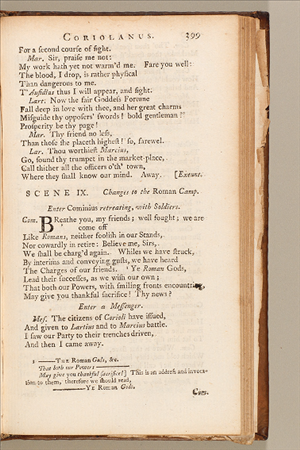 CORIOLANUS. 399
For a second course of fight.
Mar. Sir, praise me not:
My work hath yet not warm'd me. Fare you well:
The blood, I drop, is rather physical
Than dangerous to me.
T' Aufidius thus I will appear, and fight.
Lart. Now the fair Goddess Fortune
Fall deep in love with thee, and her great charms
Misguide thy opposers' swords! bold gentleman!
Prosperity be thy page!
Mar. Thy friend no less,
Than those she placeth highest! so, farewel.
Lar. Thou worthiest Marcius,
Go, sound thy trumpet in the market-place,
Call thither all the officers o'th' town,
Where they shall know our mind. Away. [Exeunt.
SCENE IX. Changes to the Roman Camp.
Enter Cominius retreating, with Soldiers.
Com. BReathe you, my friends; well fought; we are
come off
Like Romans, neither foolish in our Stands,
Nor cowardly in retire: Believe me, Sirs,
We shall be charg'd again. Whiles we have struck,
By interims and conveying gusts, we have heard
The Charges of our friends. ¹ Ye Roman Gods,
Lead their successes, as we wish our own;
That both our Powers, with smiling fronts encountring,
May give you thankful sacrifice! Thy news?
Enter a Messenger.
Mes. The citizens of Corioli have issued,
And given to Lartius and to Marcius battle.
I saw our Party to their trenches driven,
And then I came away.
1 ——THE Roman Gods, &c.
That both our Powers——
May give you thankful sacrifice!] This is an address and invoca-
tion to them, therefore we should read,
——YE Roman Gods.
Com.